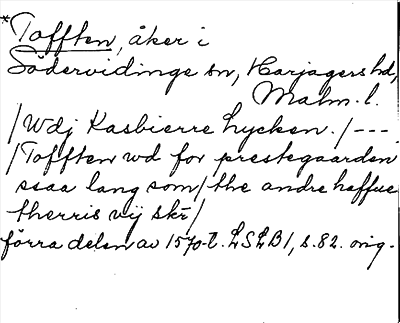 *Tofften, åker i
Södervidinge sn, Harjagers hd,
Malm. l.
/Wdj Kasbierre lycken./---
/Tofften wd for prestegaarden
ssaa lang som/ the andre haffue
therris vij skr/
förra delen av 1570-t. LSLB1, s. 82. orig.